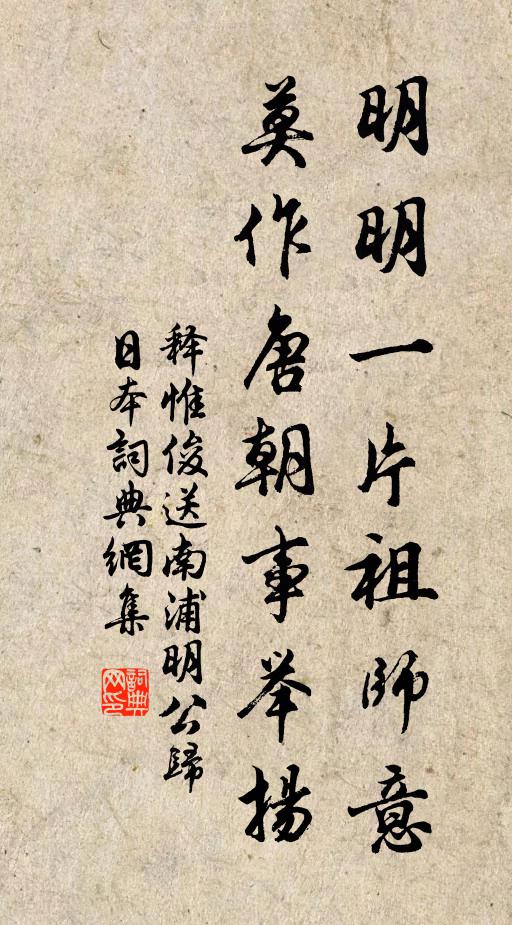 明明一片祖師意
莫作唐朝事举揚
释惟俊送南浦明公歸
日本詞典網集
詞典网印